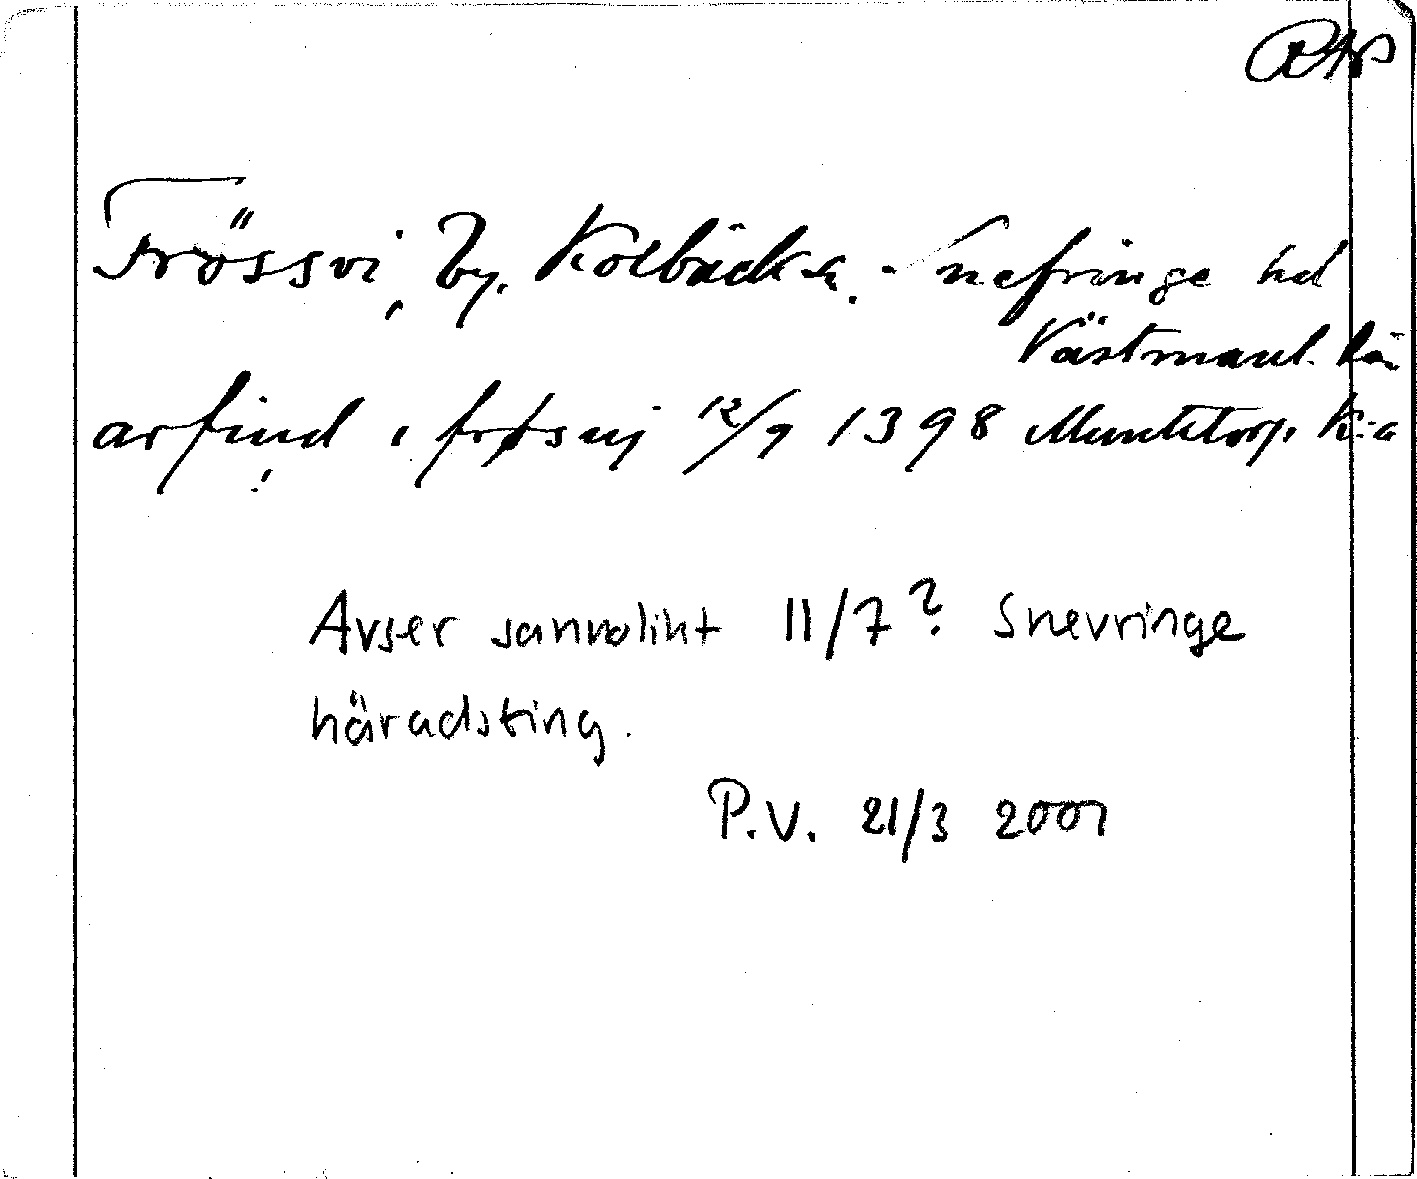 RAP
Frössvi, by. Kolbäck s. Snefringe hd
Västmanl. län
arfuid i frøsuj 12/9 1398 Munktorp K:a
Avser sannolikt 11/7? Snevringe
häradsting.
P.V. 21/3 2001